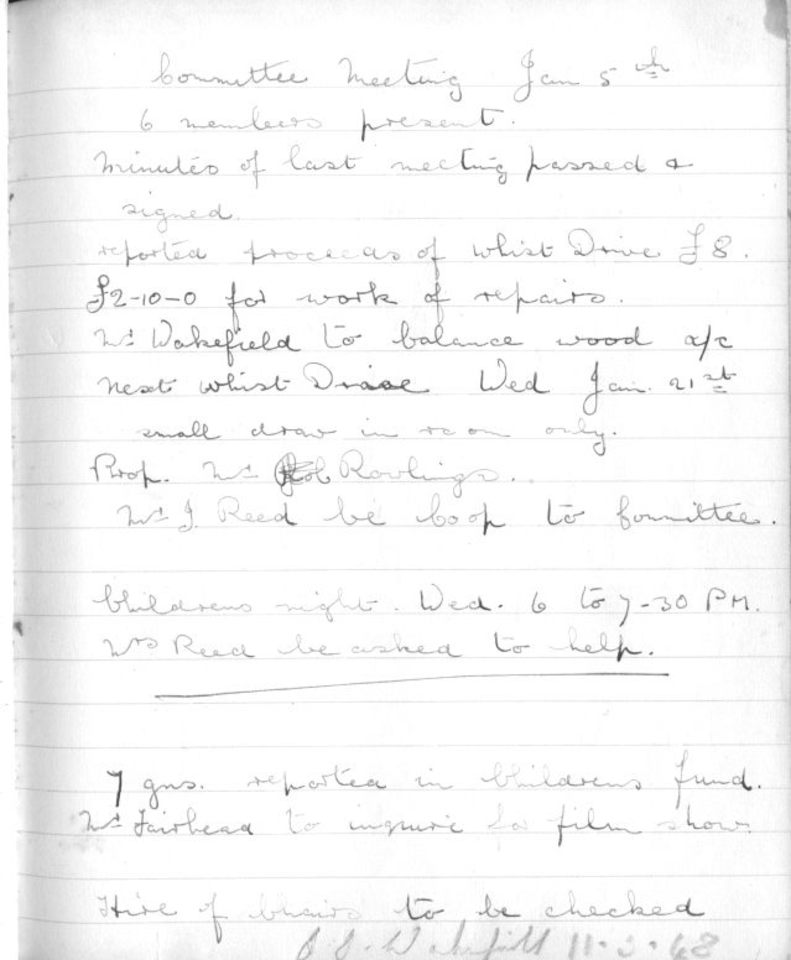 Committee Meeting Jan 5th
6 members present.
Minutes of last meeting passed &
signed.
reported proceeds of whist Drive £8.
£2-10-0 for work of repairs.
Mr Wakefield to balance wood a/c
next whist Drive Wed Jan. 21st
small draw in room only.
Prop. Mr Rawlings.
Mr J. Reed be Coop to Committee.
Childrens night. Wed. 6 to 7-30 PM.
Mrs Reed be asked to help.
7 gns. reported in Childrens fund.
Mr Fairhead to inquire for film show
Hire of Chairs to be checked
Wakefield 11.2.48